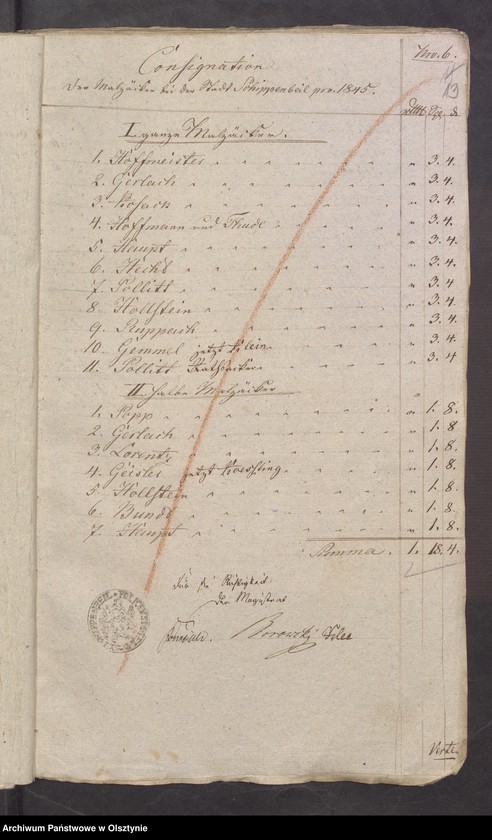 Nro. 6.
13
Consignation
Der Malzäcker bei der Stadt Schippenbeil pro. 1845.
I. ganze Malzäcker.
1. Hoffmeister " 3. 4.
2. Gerlach " 3. 4.
3. Kosack " 3. 4.
4. Hoffmann und Thudl " 3. 4.
5. Haupt " 3. 4.
6. Hecht " 3. 4.
7. Pollitt " 3. 4
8. Hollstein " 3. 4.
9. Ruppach " 3. 4.
10. Gemmel jetzt Klein " 3. 4.
11. Pollitt Rathsäcker " 3. 4
II. halbe Malzäcker
1. Popp " 1. 8.
2. Gerlach " 1. 8.
3. Lorentz " 1. 8.
4. Geisler jetzt " 1. 8.
5. Hollstein " 1. 8.
6. Bundt " 1. 8.
7. Haupt " 1. 8.
Summa. 1. 18. 4.
Für die Richtigkeit
der Magistrat
Borowski
Verte
Archiwum Państwowe w Olsztynie